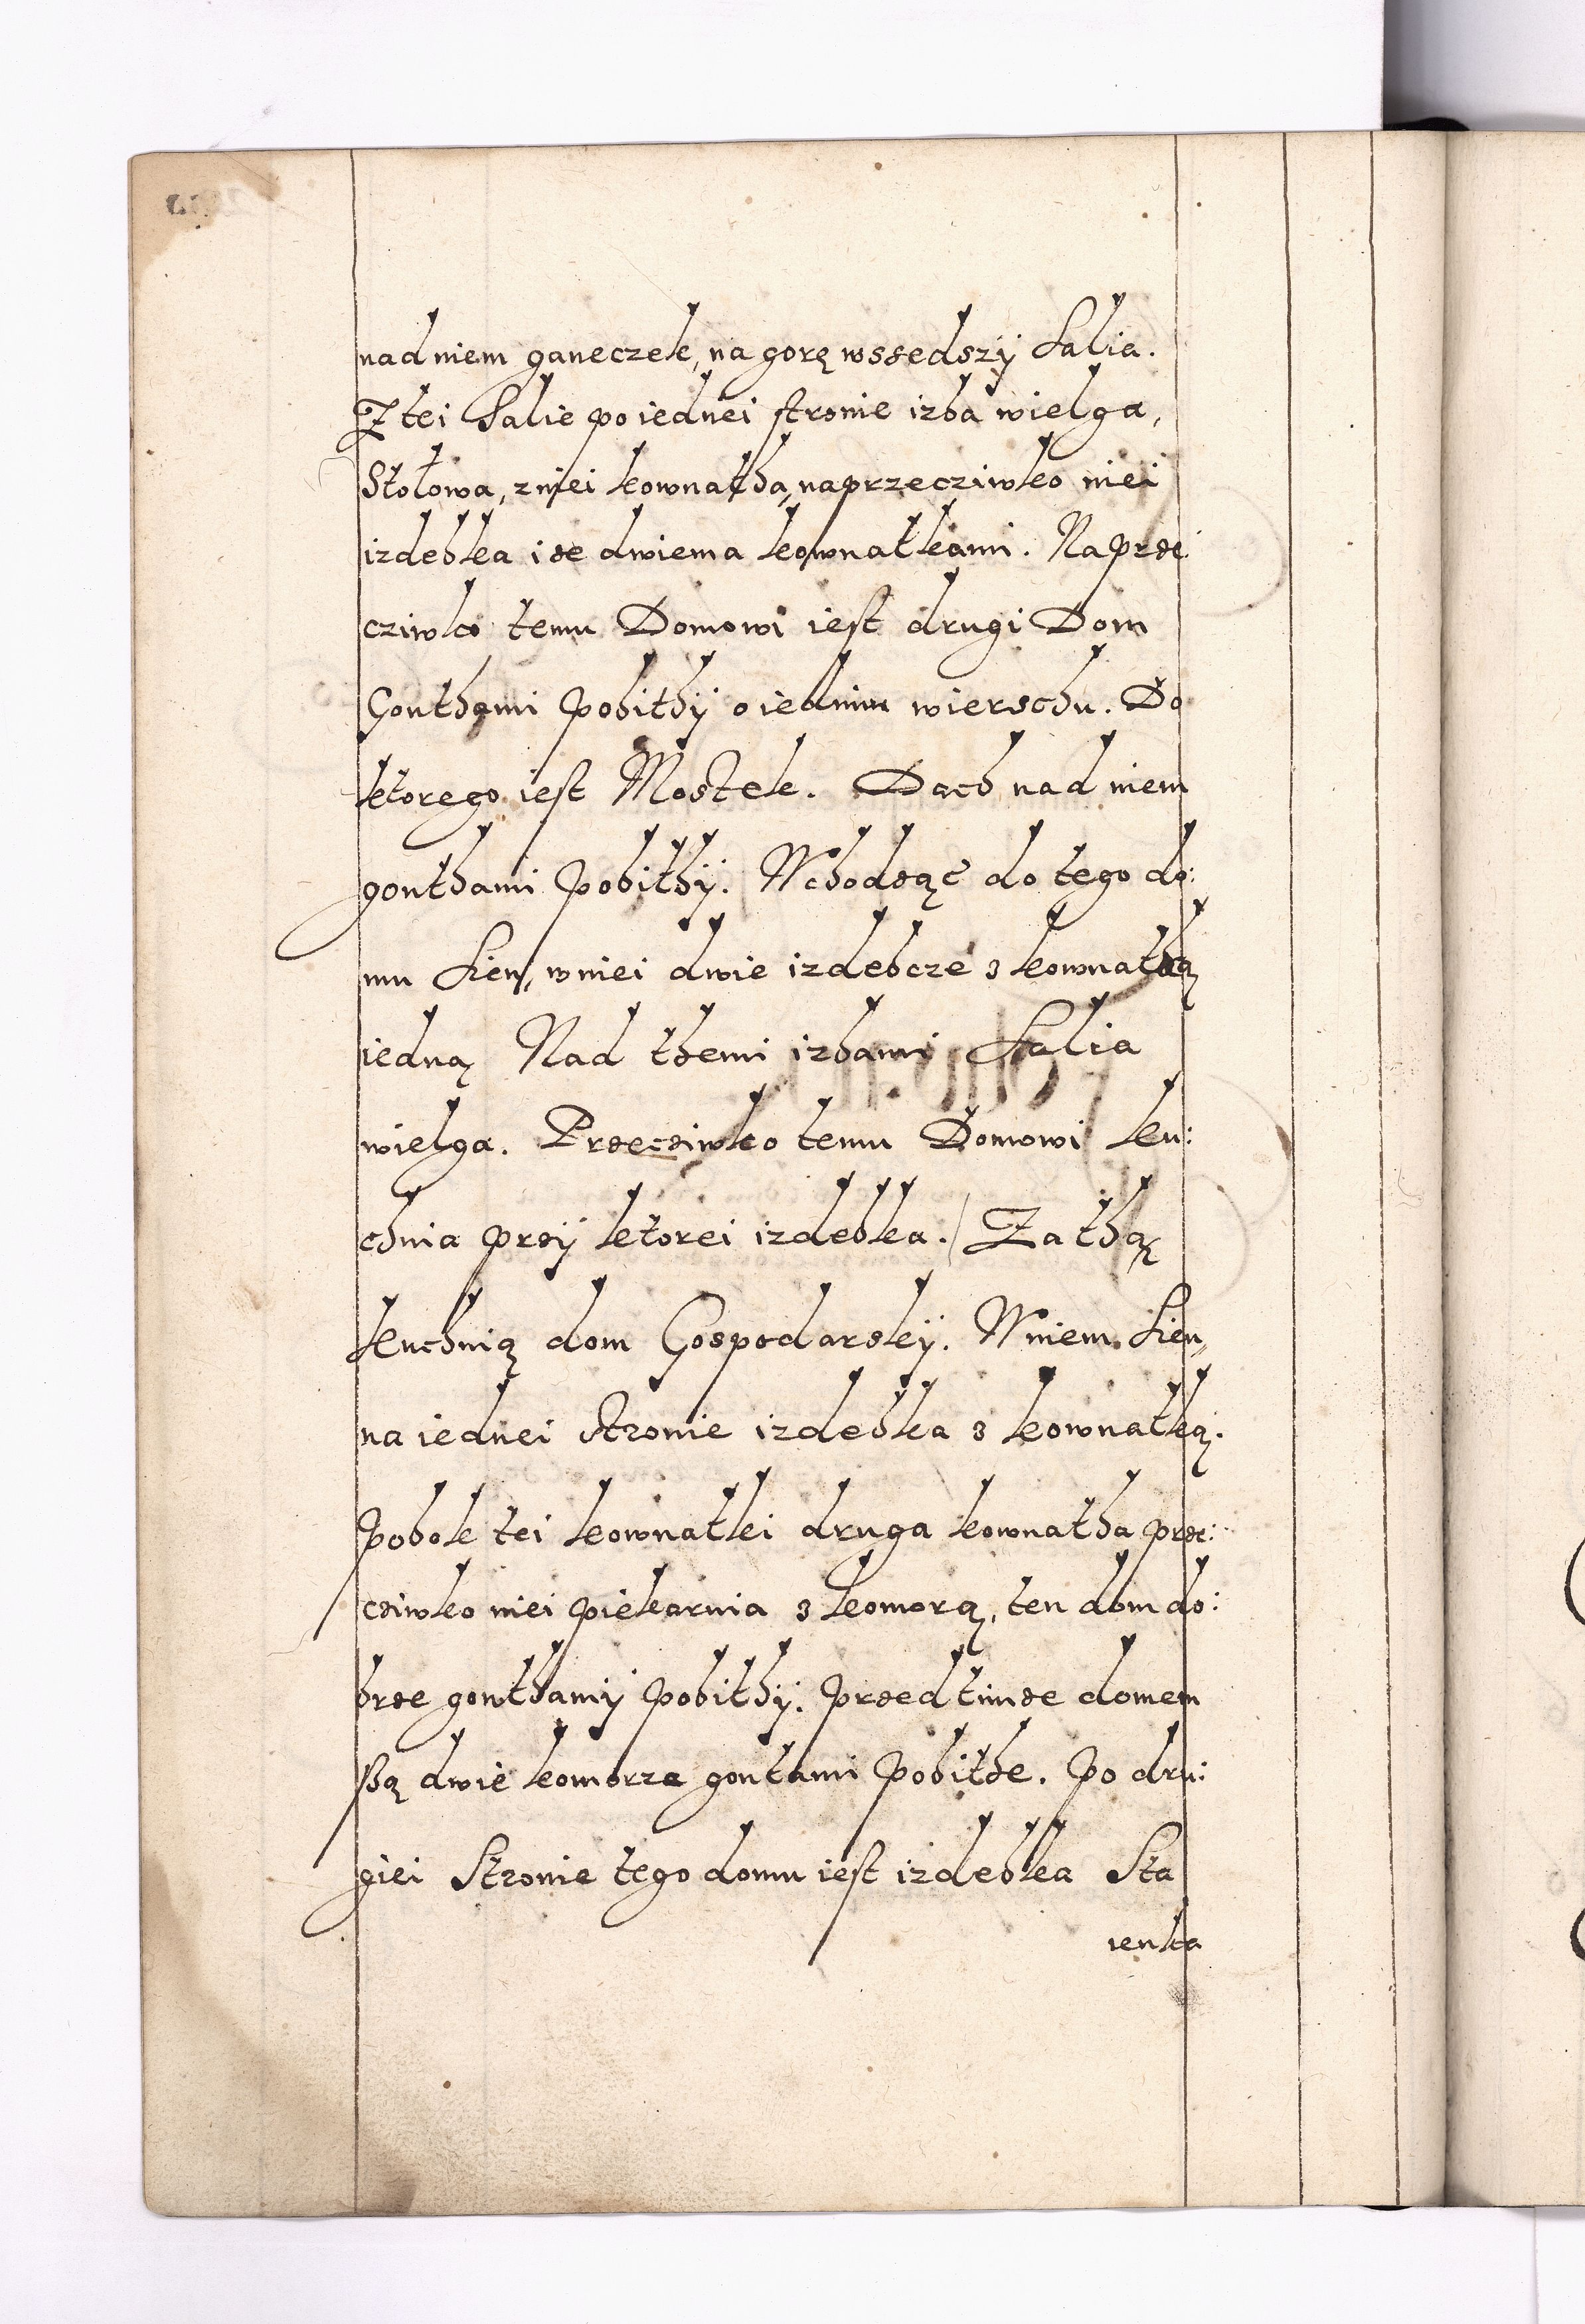 nad niem ganeczek, na gorę wsszedszÿ Salia.
Z tei Salie po iednei stronie izba wielga,
Stołowa, z niei kownatha, naprzecziwko niei
izdebka i ze dwiema kownatkami. Naprze:
cziwko temu Domowi iest drugi Dom
Gonthami pobithÿ o iednim wierschu. Do
ktorego iest Mostek. Dach nad niem
gonthami pobithÿ. Wchodząc do tego do:
mu Sien, w niei dwie izdebcze z kownathką
iedną Nad themi izbami Salia
wielga. Przecziwko temu Domowi ku:
chnia przÿ ktorei izdebka. Za thą
kuchnią dom Gospodarskÿ. W niem Sien,
na iednei stronie izdebka z kownatką.
Pobok tei kownatki druga kownatha prze:
cziwko niei piekarnia z komorą, ten dom do:
brze gonthamÿ pobithÿ. Przed timze domem
ßą dwie komorze gontami pobithe. Po dru:
giei Stronie tego domu iest izdebka Sta
ienka